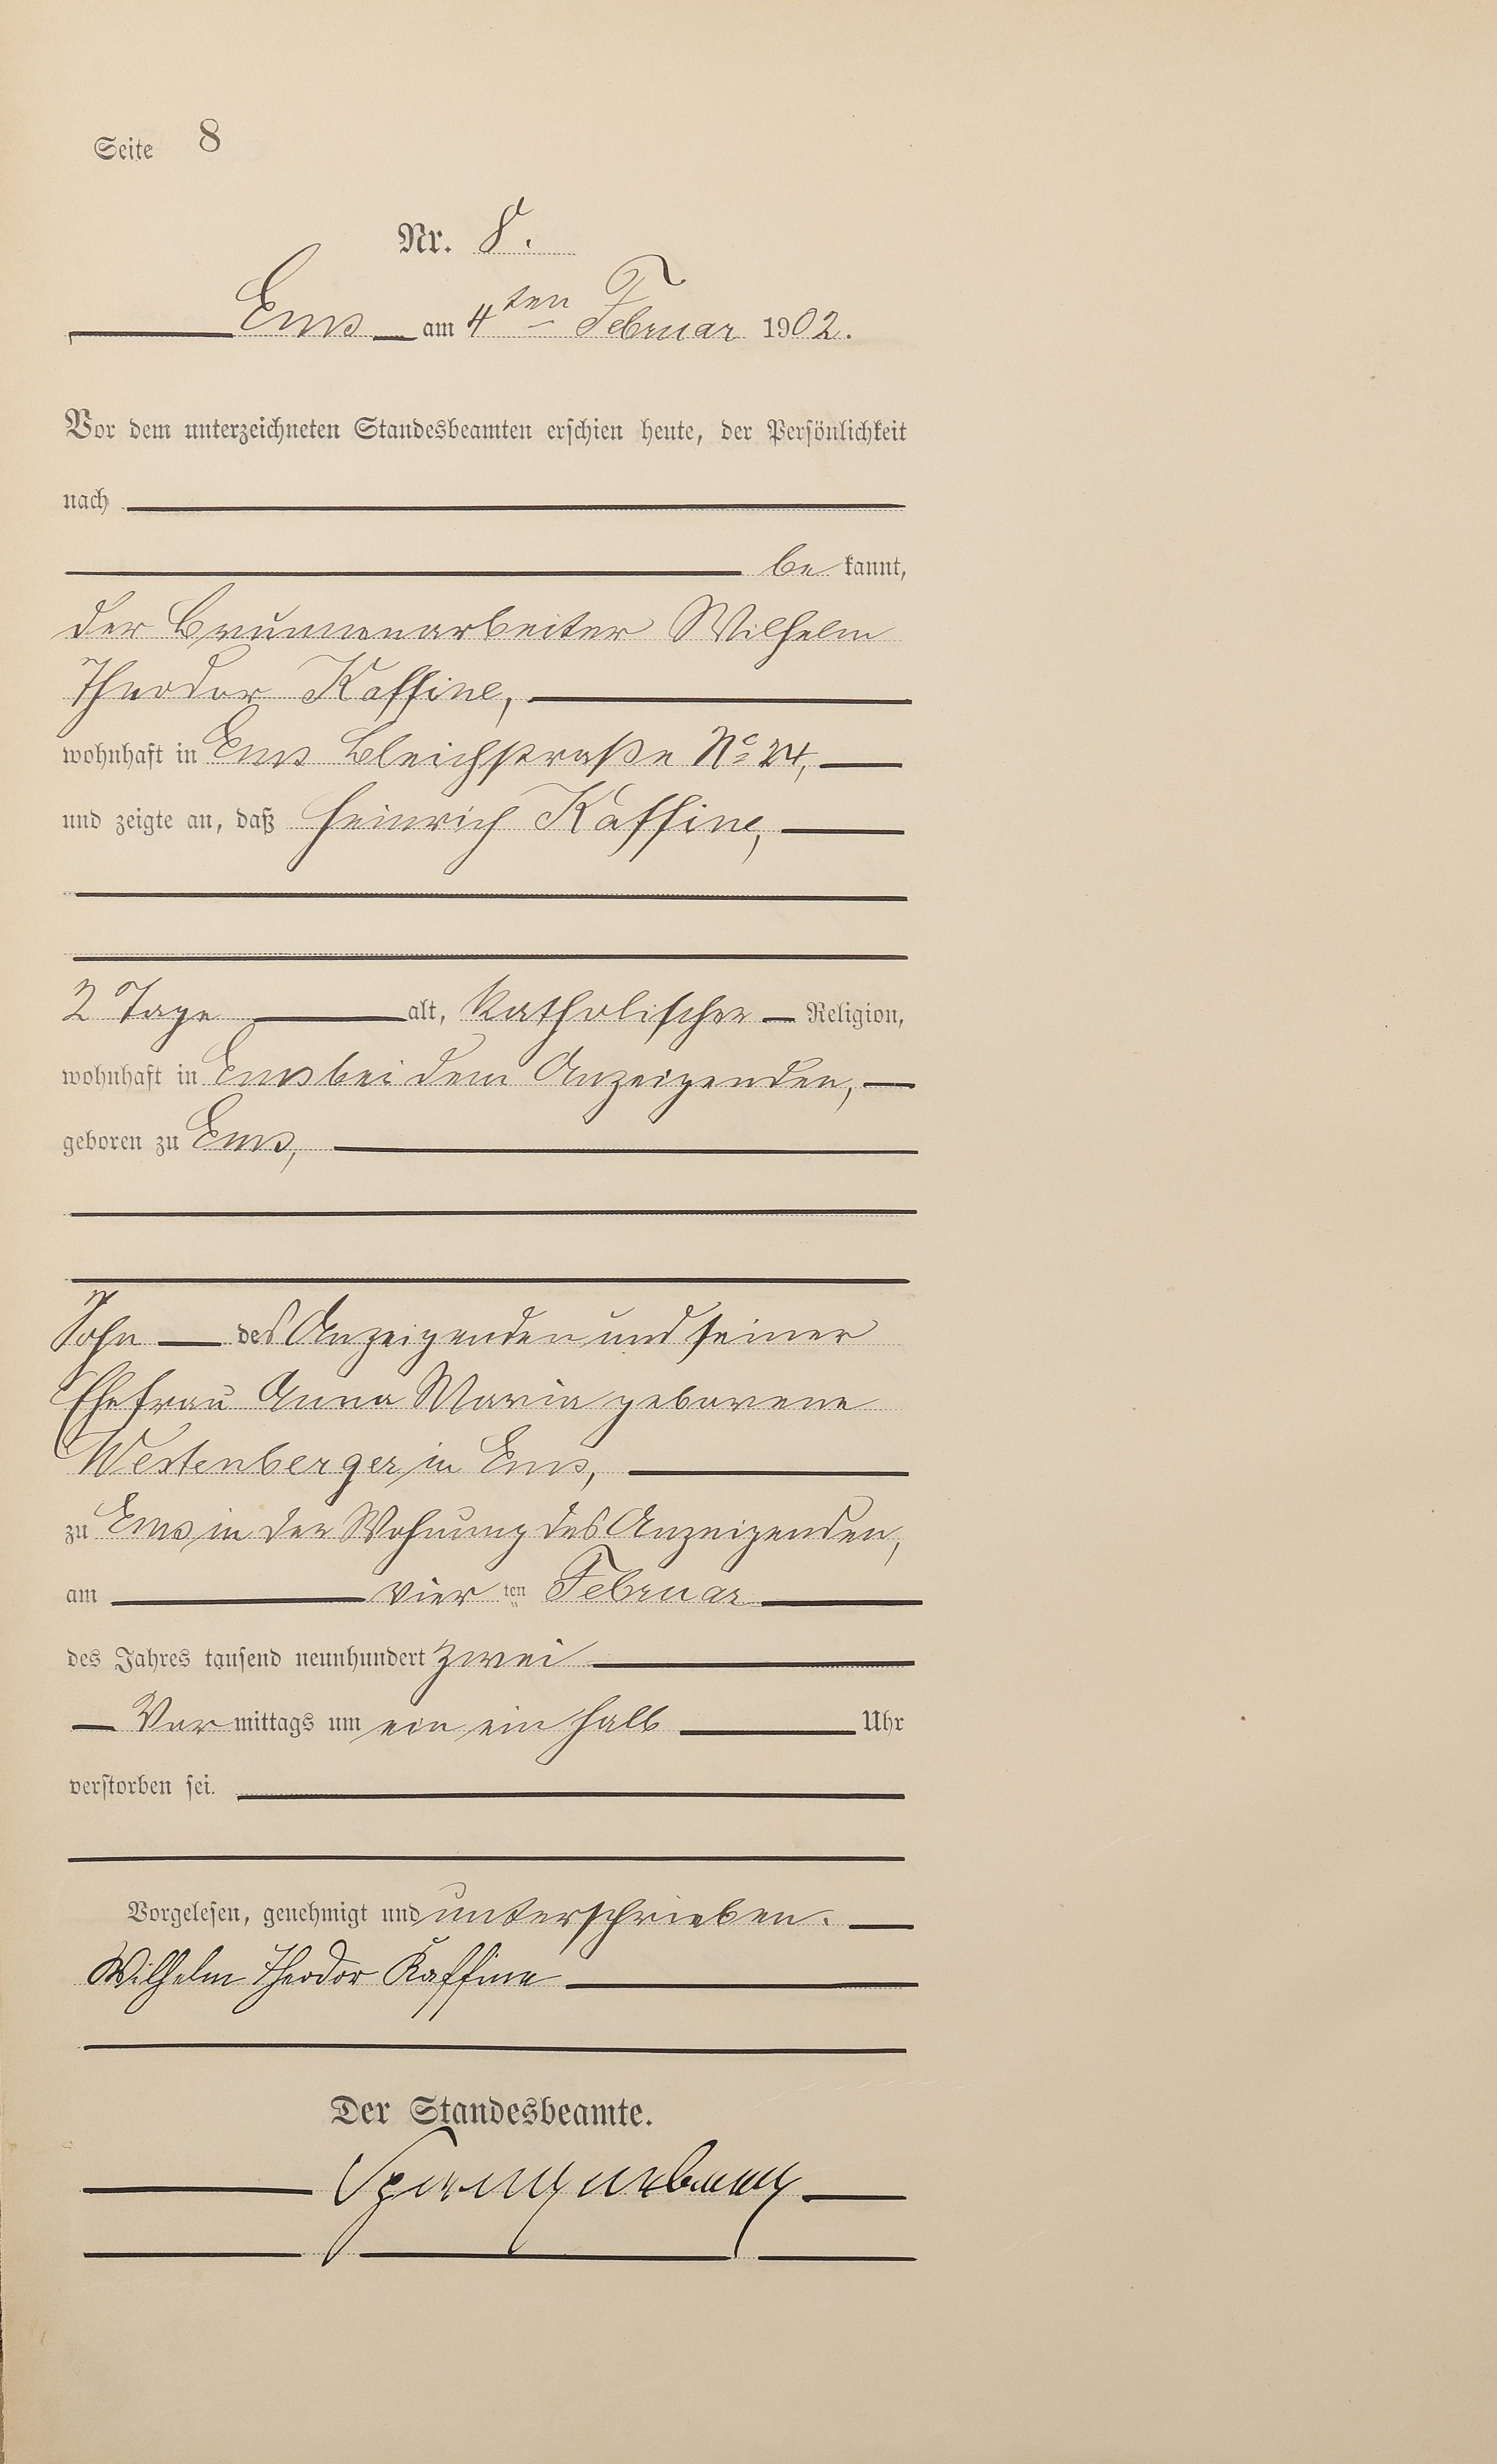 Seite 8
Nr. 8.
Ems am 4ten Februar 1902.
Vor dem unterzeichneten Standesbeamten erschien heute, der Persönlichkeit
nach
be kannt,
der Brunnenarbeiter Wilhelm
Theodor Kaffine,
wohnhaft in Ems Bleichstraße No 24,
und zeigte an, daß Heinrich Kaffine,
2 Tage alt, katholischer Religion,
wohnhaft in Ems bei dem Anzeigenden,
geboren zu Ems,
Sohn des Anzeigenden und seiner
Ehefrau Anna Maria geborene
Westenberger in Ems,
zu Ems in der Wohnung des Anzeigenden,
am vier ten Februar
des Jahres tausend neunhundert zwei
Vor mittags um ein ein halb Uhr
verstorben sei.
Vorgelesen, genehmigt und unterschrieben.
Wilhelm Theodor Kaffine
Der Standesbeamte.